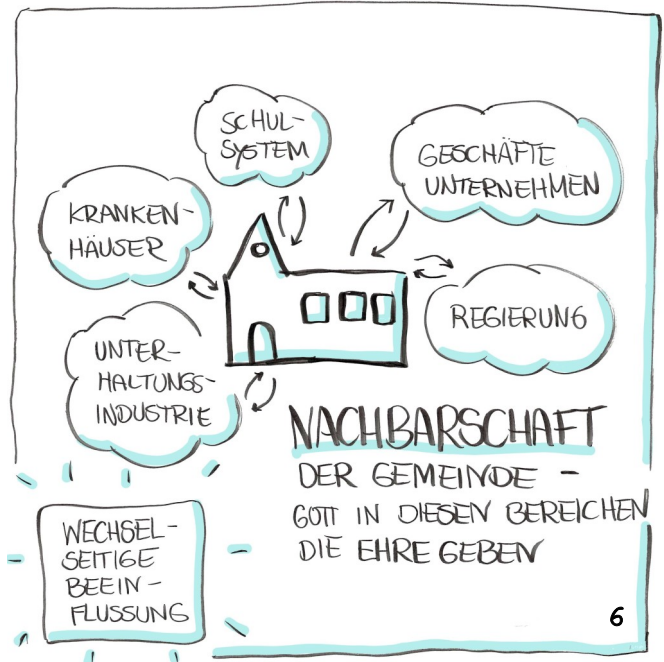 SCHUL-
SYSTEM
GESCHÄFTE
UNTERNEHMEN
KRANKEN-
HÄUSER
REGIERUNG
UNTER-
HALTUNGS-
INDUSTRIE
NACHBARSCHAFT
DER GEMEINDE -
GOTT IN DIESEN BEREICHEN
DIE EHRE GEBEN
WECHSEL-
SEITIGE
BEEIN-
FLUSSUNG
6